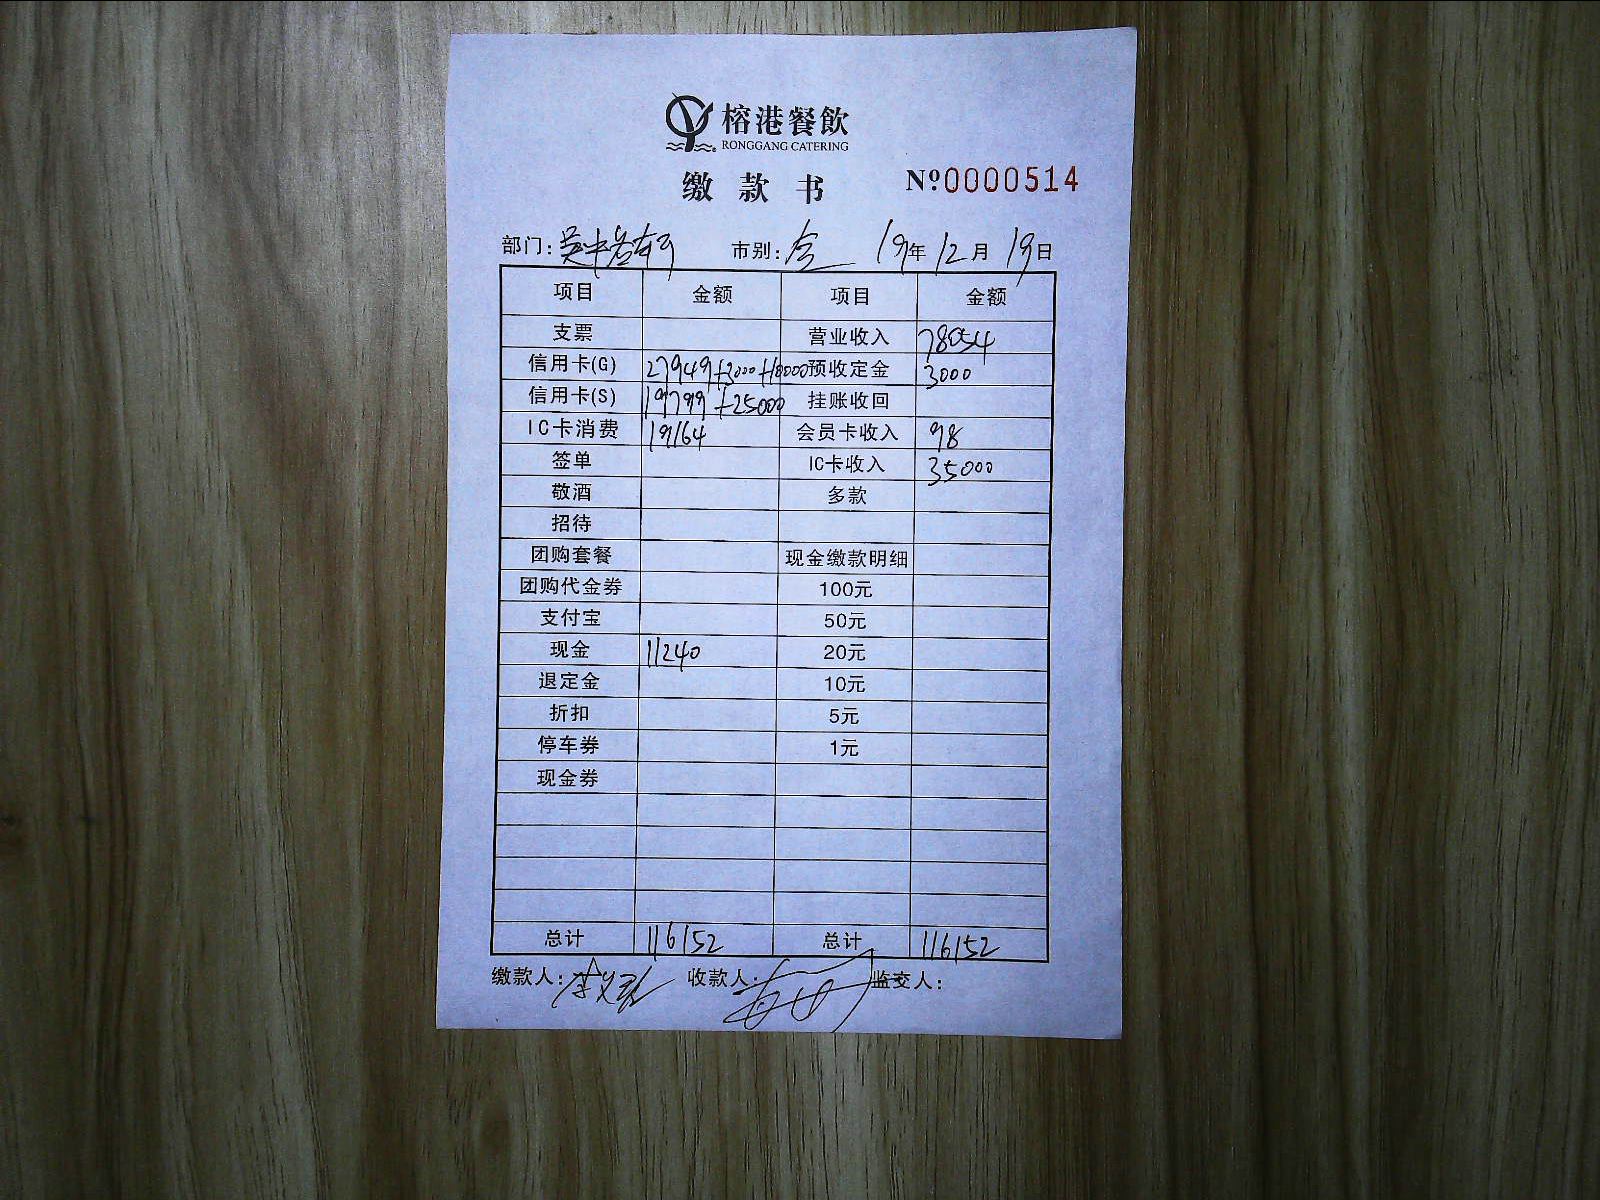 榕港餐飲
RONGGANG CATERING
缴款书 Nº0000514
部门: 市别:全 19年12月19日
项目 金额 项目 金额
支票 营业收入 78054
信用卡(G) 27949+3000+10000 预收定金 3000
信用卡(S) 19799+25000 挂账收回
IC卡消费 19164 会员卡收入 98
签单 IC卡收入 35000
敬酒 多款
招待
团购套餐 现金缴款明细
团购代金券 100元
支付宝 50元
现金 11240 20元
退定金 10元
折扣 5元
停车券 1元
现金券
总计 116152 总计 116152
缴款人: 收款人: 监交人: